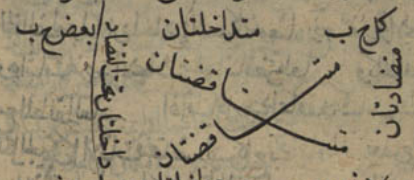 كل ج ب متداخلتان بعض ج ب
متضادتان
متناقضتان
متناقضتان
داخلتان تحت التضاد